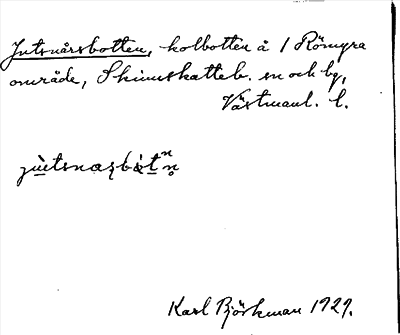 Jutsnårsbotten, kolbotten å 1 Römyra
område, Skinnskatteb. sn och bg,
Västmanl. l.
Karl Björkman 1929.